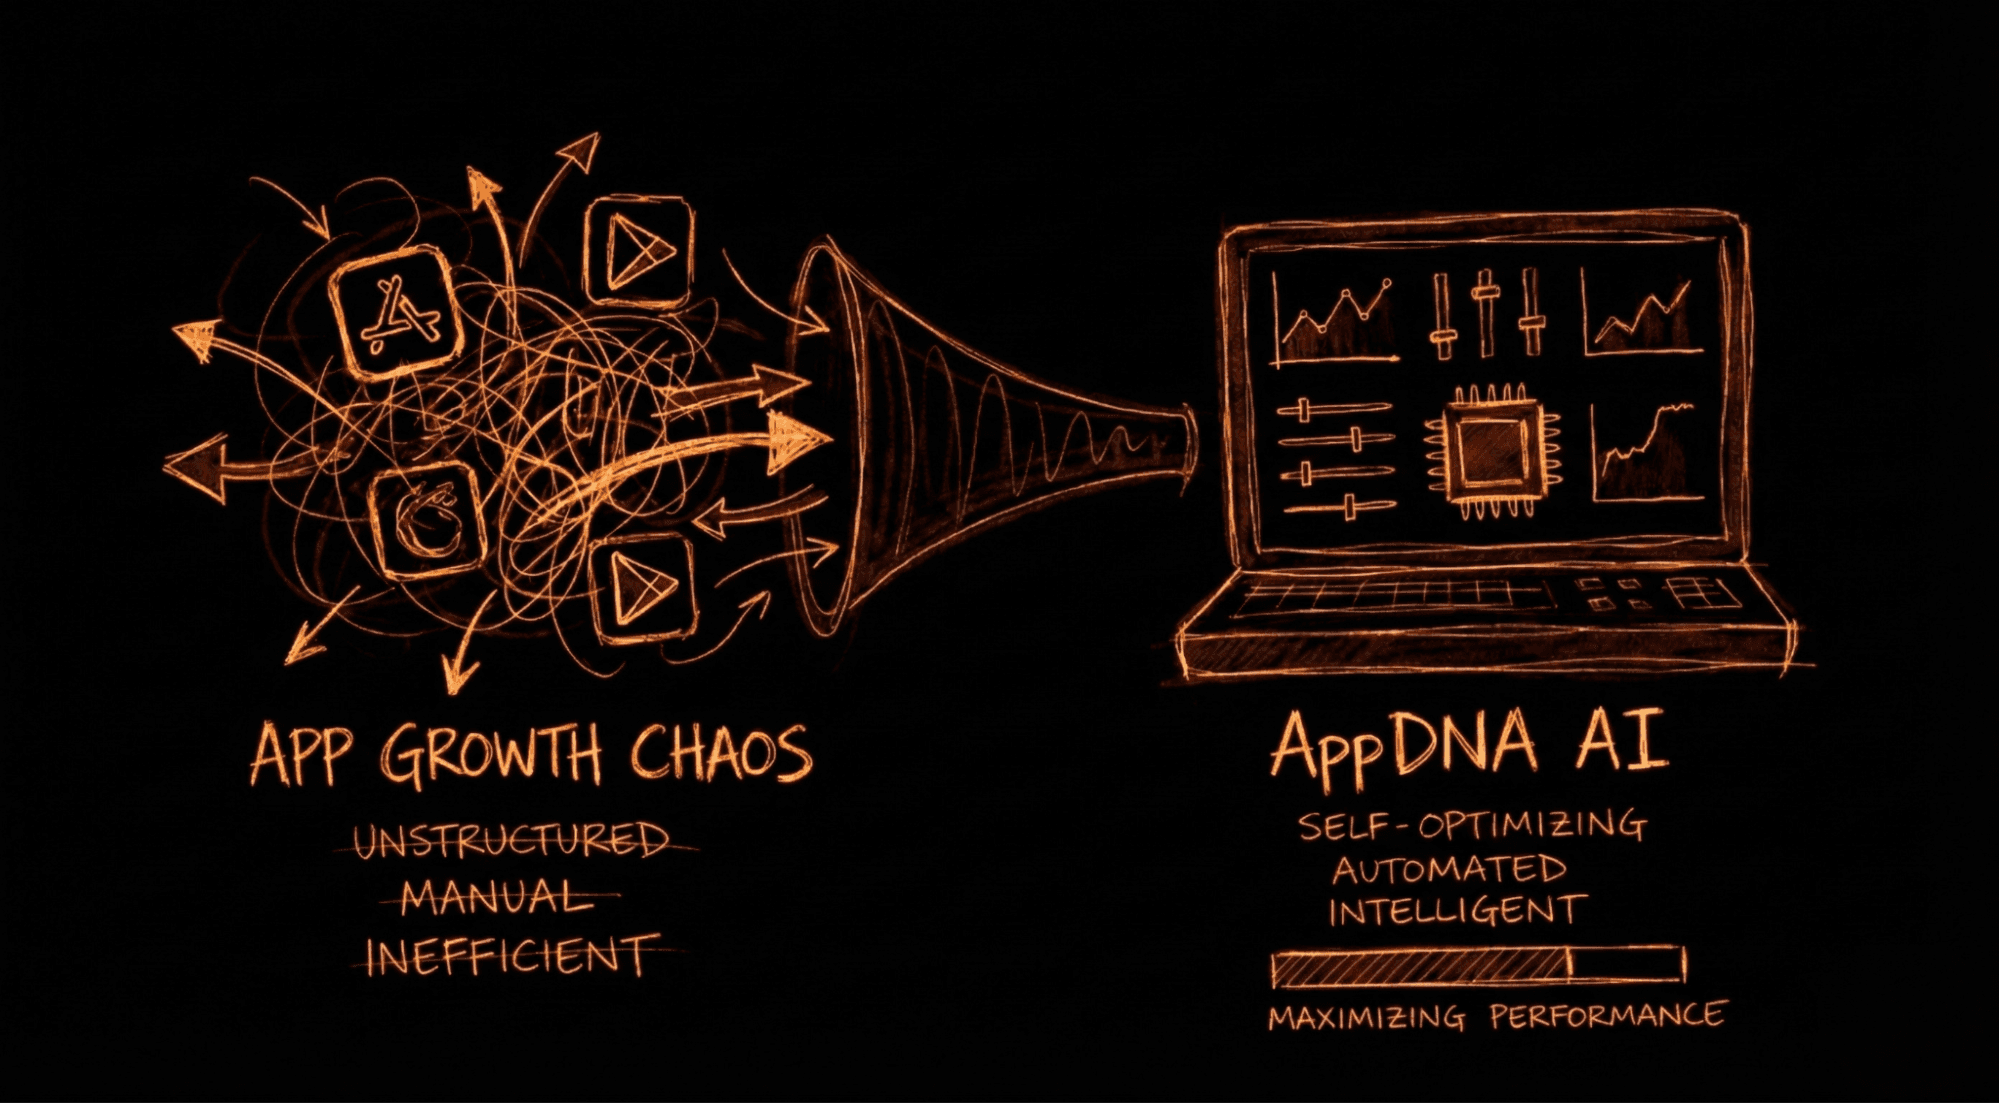 APP GROWTH CHAOS
UNSTRUCTURED
MANUAL
INEFFICIENT
AppDNA AI
SELF-OPTIMIZING
AUTOMATED
INTELLIGENT
MAXIMIZING PERFORMANCE